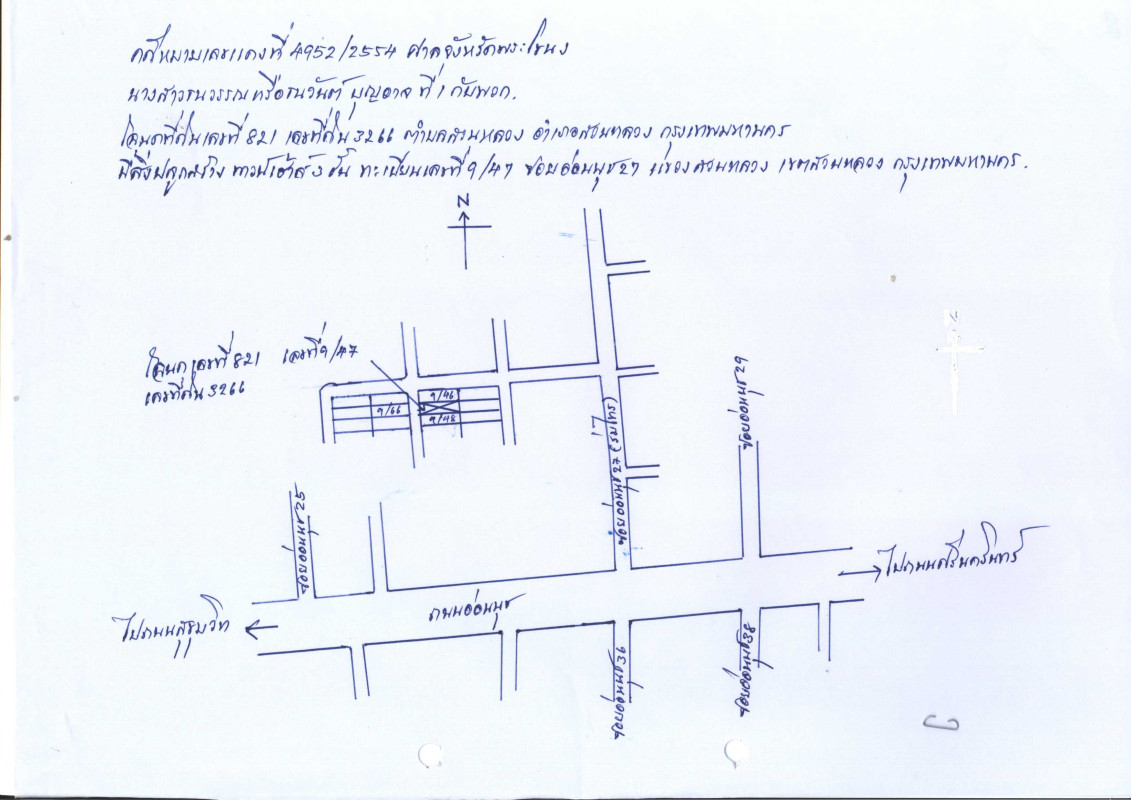 คดีหมายเลขแดงที่ 4952/2554 ศาลจังหวัดพระโขนง
นางสาวธนวรรณหรือธนวันต์ บุญอาจ ที่ 1 กับพวก.
โฉนดที่ดินเลขที่ 821 เลขที่ดิน 3266 ตำบลสวนหลวง อำเภอสวนหลวง กรุงเทพมหานคร
มีสิ่งปลูกสร้าง ทาวน์เฮ้าส์ ชั้น ทะเบียนเลขที่ 9/47 ซอยอ่อนนุช 27 แขวงสวนหลวง เขตสวนหลวง กรุงเทพมหานคร.
N
โฉนดเลขที่ 821 เลขที่ 9/47
เลขที่ดิน 3266
9/46
9/66
9/48
ซอยอ่อนนุช 29
17
ซอยอ่อนนุช 27 (ร่มไทร)
ซอยอ่อนนุช 25
ไปถนนศรีนครินทร์
ถนนอ่อนนุช
ไปถนนสุขุมวิท
ซอยอ่อนนุช 36
ซอยอ่อนนุช 38